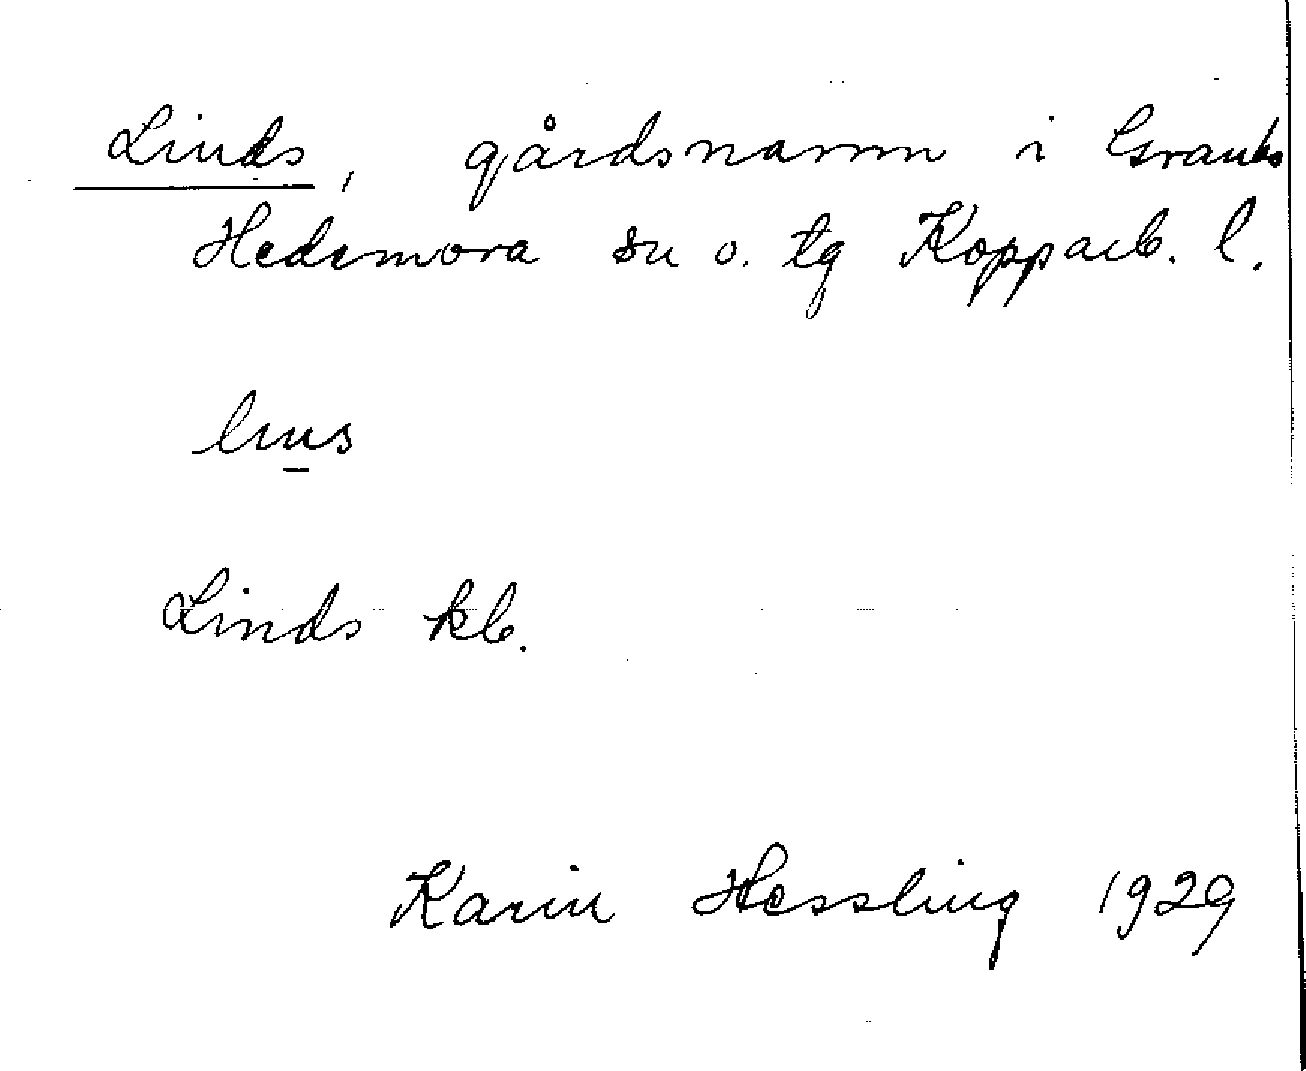 Linds, gårdsnamn i
Hedemora sn o. tg Kopparb. l.
Linds kb.
Karin Hessling 1929